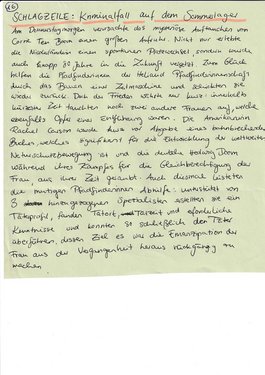 26
SCHLAGZEILE: Kriminalfall auf dem Sommerlager
Am Donnerstagmorgen verursachte das mysteriöse Auftauchen von
Corrie Ten Boom einen großen Aufruhr. Nicht nur erlebte
die Niederländerin einen spontanen Ortswechsel sondern wurde
auch knapp 80 Jahre in die Zukunft versetzt. Zum Glück
halfen die Pfadfinderinnen der Heliand Pfadfinderinnenschaft
durch das Bauen einer Zeitmaschine und schickten sie
wieder zurück. Doch der Frieden währte nur kurz: innerhalb
kürzester Zeit tauchten noch zwei andere Frauen auf, welche
ebenfalls Opfer eine Entführung waren. Die Amerikanerin
Rachel Carson wurde kurz vor Abgabe eines bahnbrechenden
Buches, welches signifikant für die Entwicklung der weltweiten
Naturschutzbewegung ist und die deutsche Hedwig Dohm
während ihres Kampfes für die Gleichberechtigung der
Frau aus ihrer Zeit geraubt. Auch diesmal leisteten
die mutigen Pfadfinderinnen Abhilfe: unterstützt von
3 hinzugezogenen Spezialisten erstellten sie ein
Täterprofil, fanden Tatort, Tatzeit und erforderliche
Kenntnisse und konnten so schließlich den Täter
überführen, dessen Ziel es war die Emanzipation der
Frau aus der Vergangenheit heraus rückgängig zu
machen